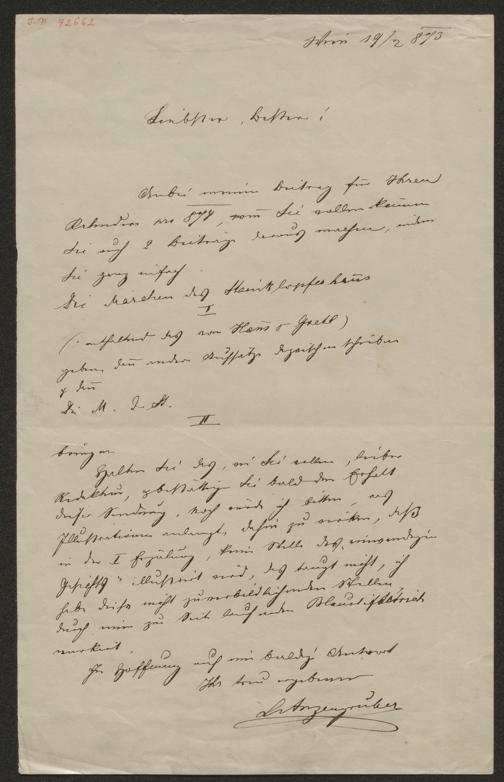 I.N. 72662
Wien 19/2 873
Liebster, Bester!
Anbei meinen Beitrag für Ihren
Kalender pro 874, wenn Sie wollen können
Sie auch 2 Beiträge daraus machen, indem
Sie ganz einfach
Die Märchen des Steinklopferhanns
I
(enthaltend das von Hans & Gretl)
geben, den andern Aufsätze dazwischen schieben
& dann
Die M. d. St.
II
bringen.
Halten Sie das, wie Sie wollen, lieber
Redakteur, bestätigen Sie bald den Erhalt
dieser Sendung, noch würde ich bitten, was
Illustrationen anlangt, dahin zu wirken, daß
in der I Erzählung, keine Stelle des
illustrirt wird, das taugt nicht, ich
habe diese nicht zu Stellen
durch eine zur Seite laufenden Blaustiftstrich
markirt.
In Hoffnung auf eine baldige Antwort
Ihr treu ergebener
LAnzengruber